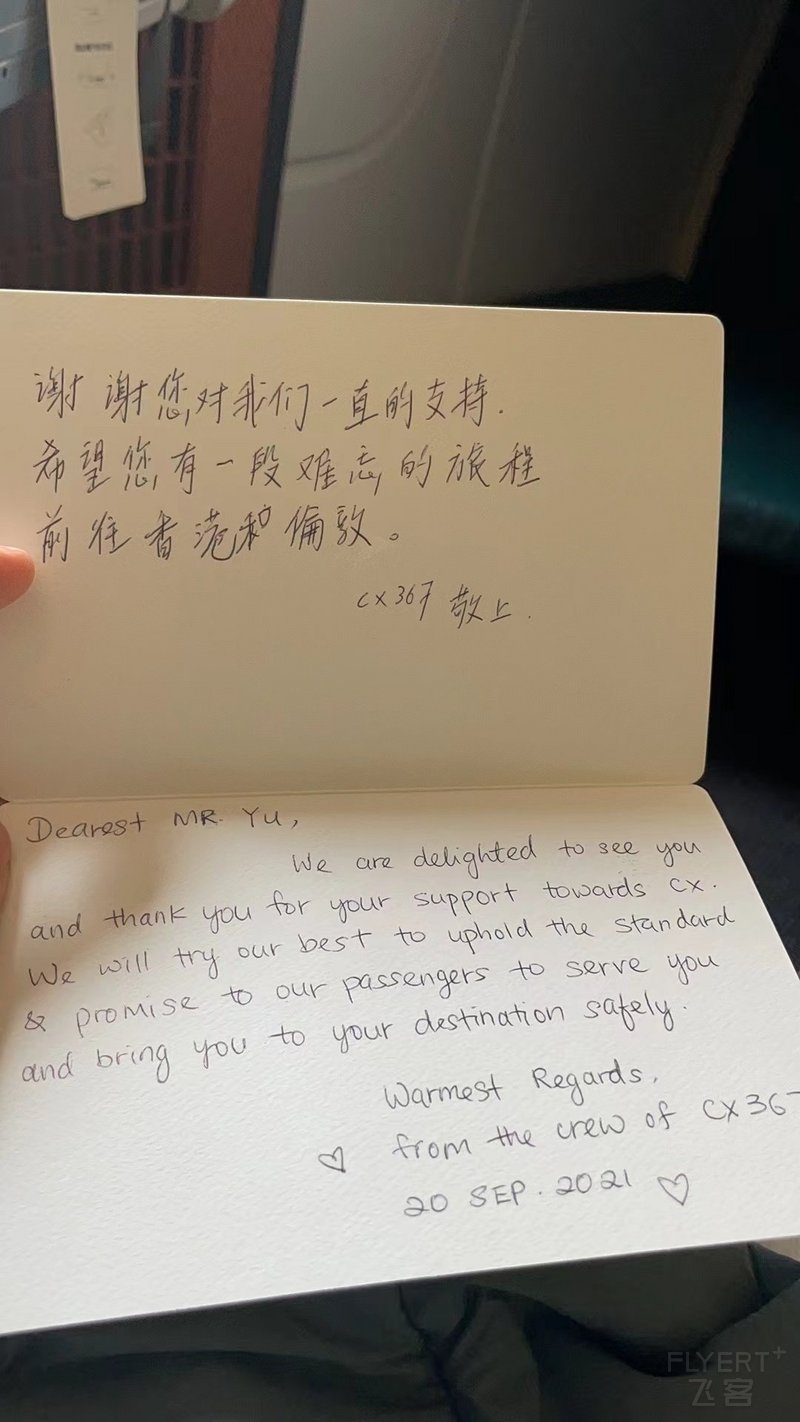 谢谢您对我们一直的支持.
希望您有一段难忘的旅程
前往香港和倫敦。
CX367 敬上.
Dearest MR. YU,
We are delighted to see you
and thank you for your support towards CX.
We will try our best to uphold the standard
& promise to our passengers to serve you
and bring you to your destination safely.
Warmest Regards,
from the crew of CX367
20 SEP. 2021
FLYERT+
飞客